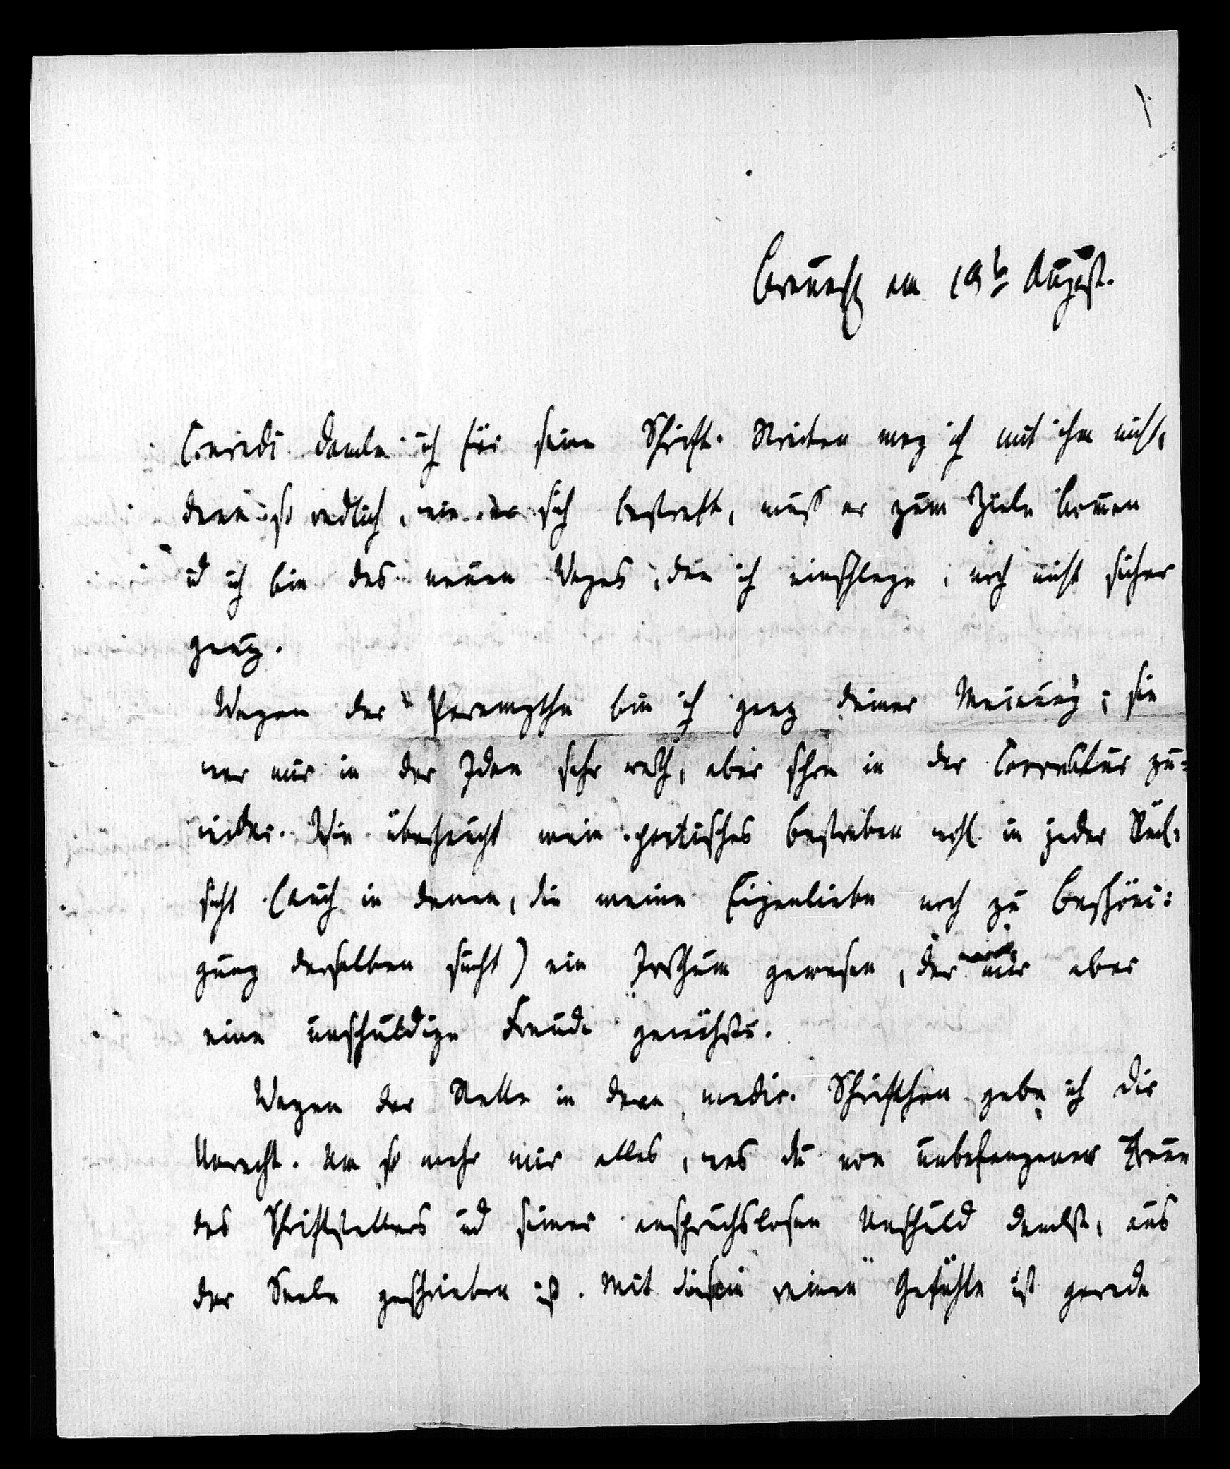 am 19t August.
Conradi danke ich für seine Schrift. Streiten mag ich mit ihm nicht,
denn so redlich, wie er sich bestrebt, muß er zum Ziele kom̅en
ud ich bin des neuen Weges, den ich einschlage, noch nicht sicher
genug.
Wegen der Paramythe bin ich ganz deiner Meinung; sie
war mir in der Idee sehr werth, aber schon in der Correktur zu-
wider. Wie überhaupt mein poetisches Bestreben wohl in jeder Rück-
sicht (auch in denen, die meine Eigenliebe noch zu Beschöni-
gung derselben sucht) ein Irrthum gewesen, der mir aber
eine unschuldige Freude gewährte.
Wegen der Stelle in dem medic. Schriftchen gebe ich Dir
Unrecht. Um so mehr mir alles, was du von unbefangener Treue
des Schriftstellers ud seiner anspruchslosen Unschuld denkst, aus
der Seele geschrieben ist. Mit diesem reinen Gefühle ist gerade